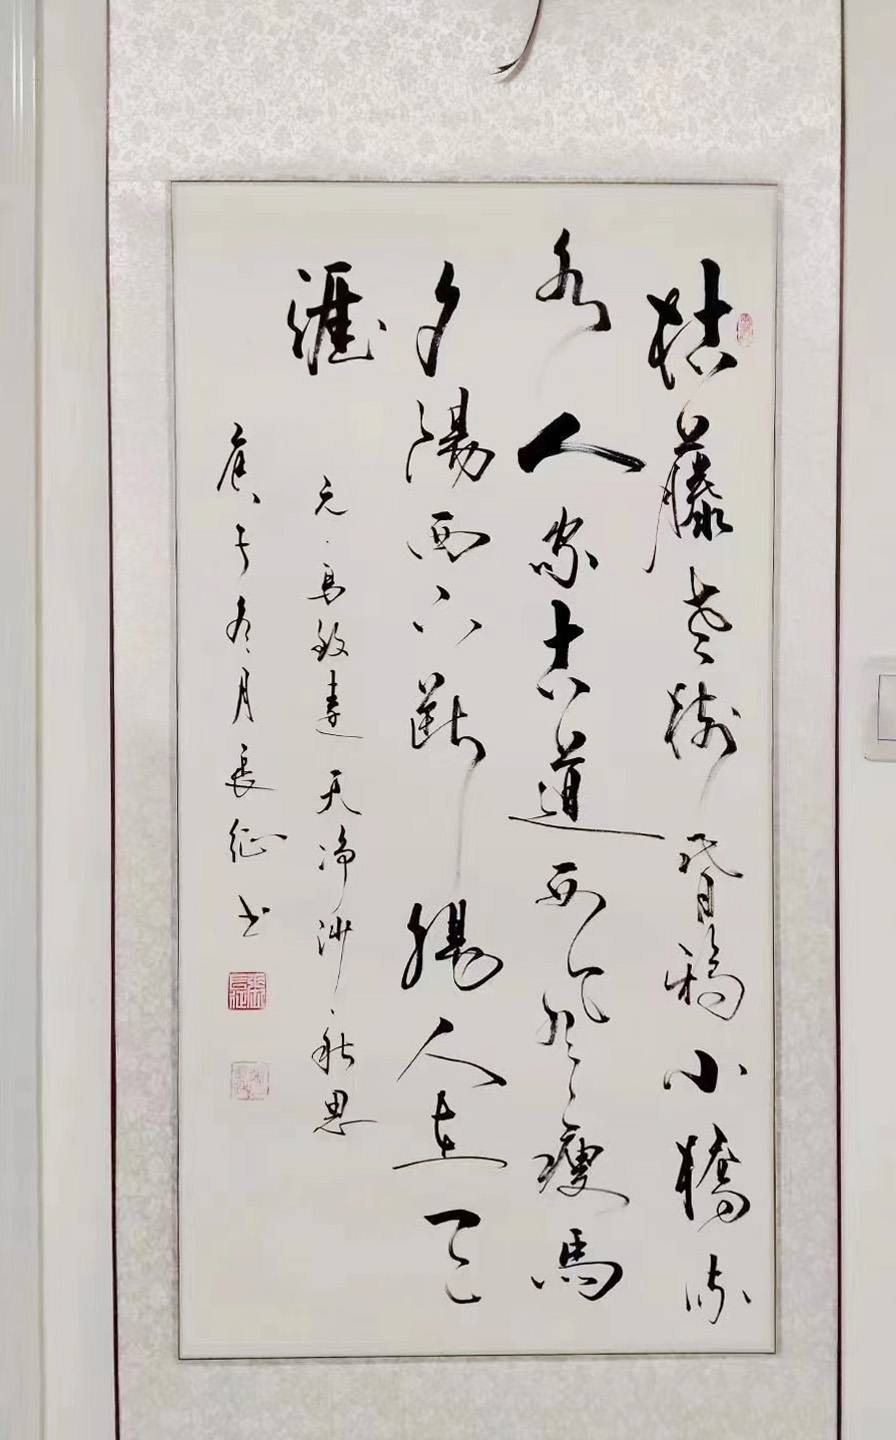 枯藤老樹昏鴉小橋流
水人家古道西風瘦馬
夕陽西下斷腸人在天
涯
元·馬致遠天净沙·秋思
庚子冬月長征书